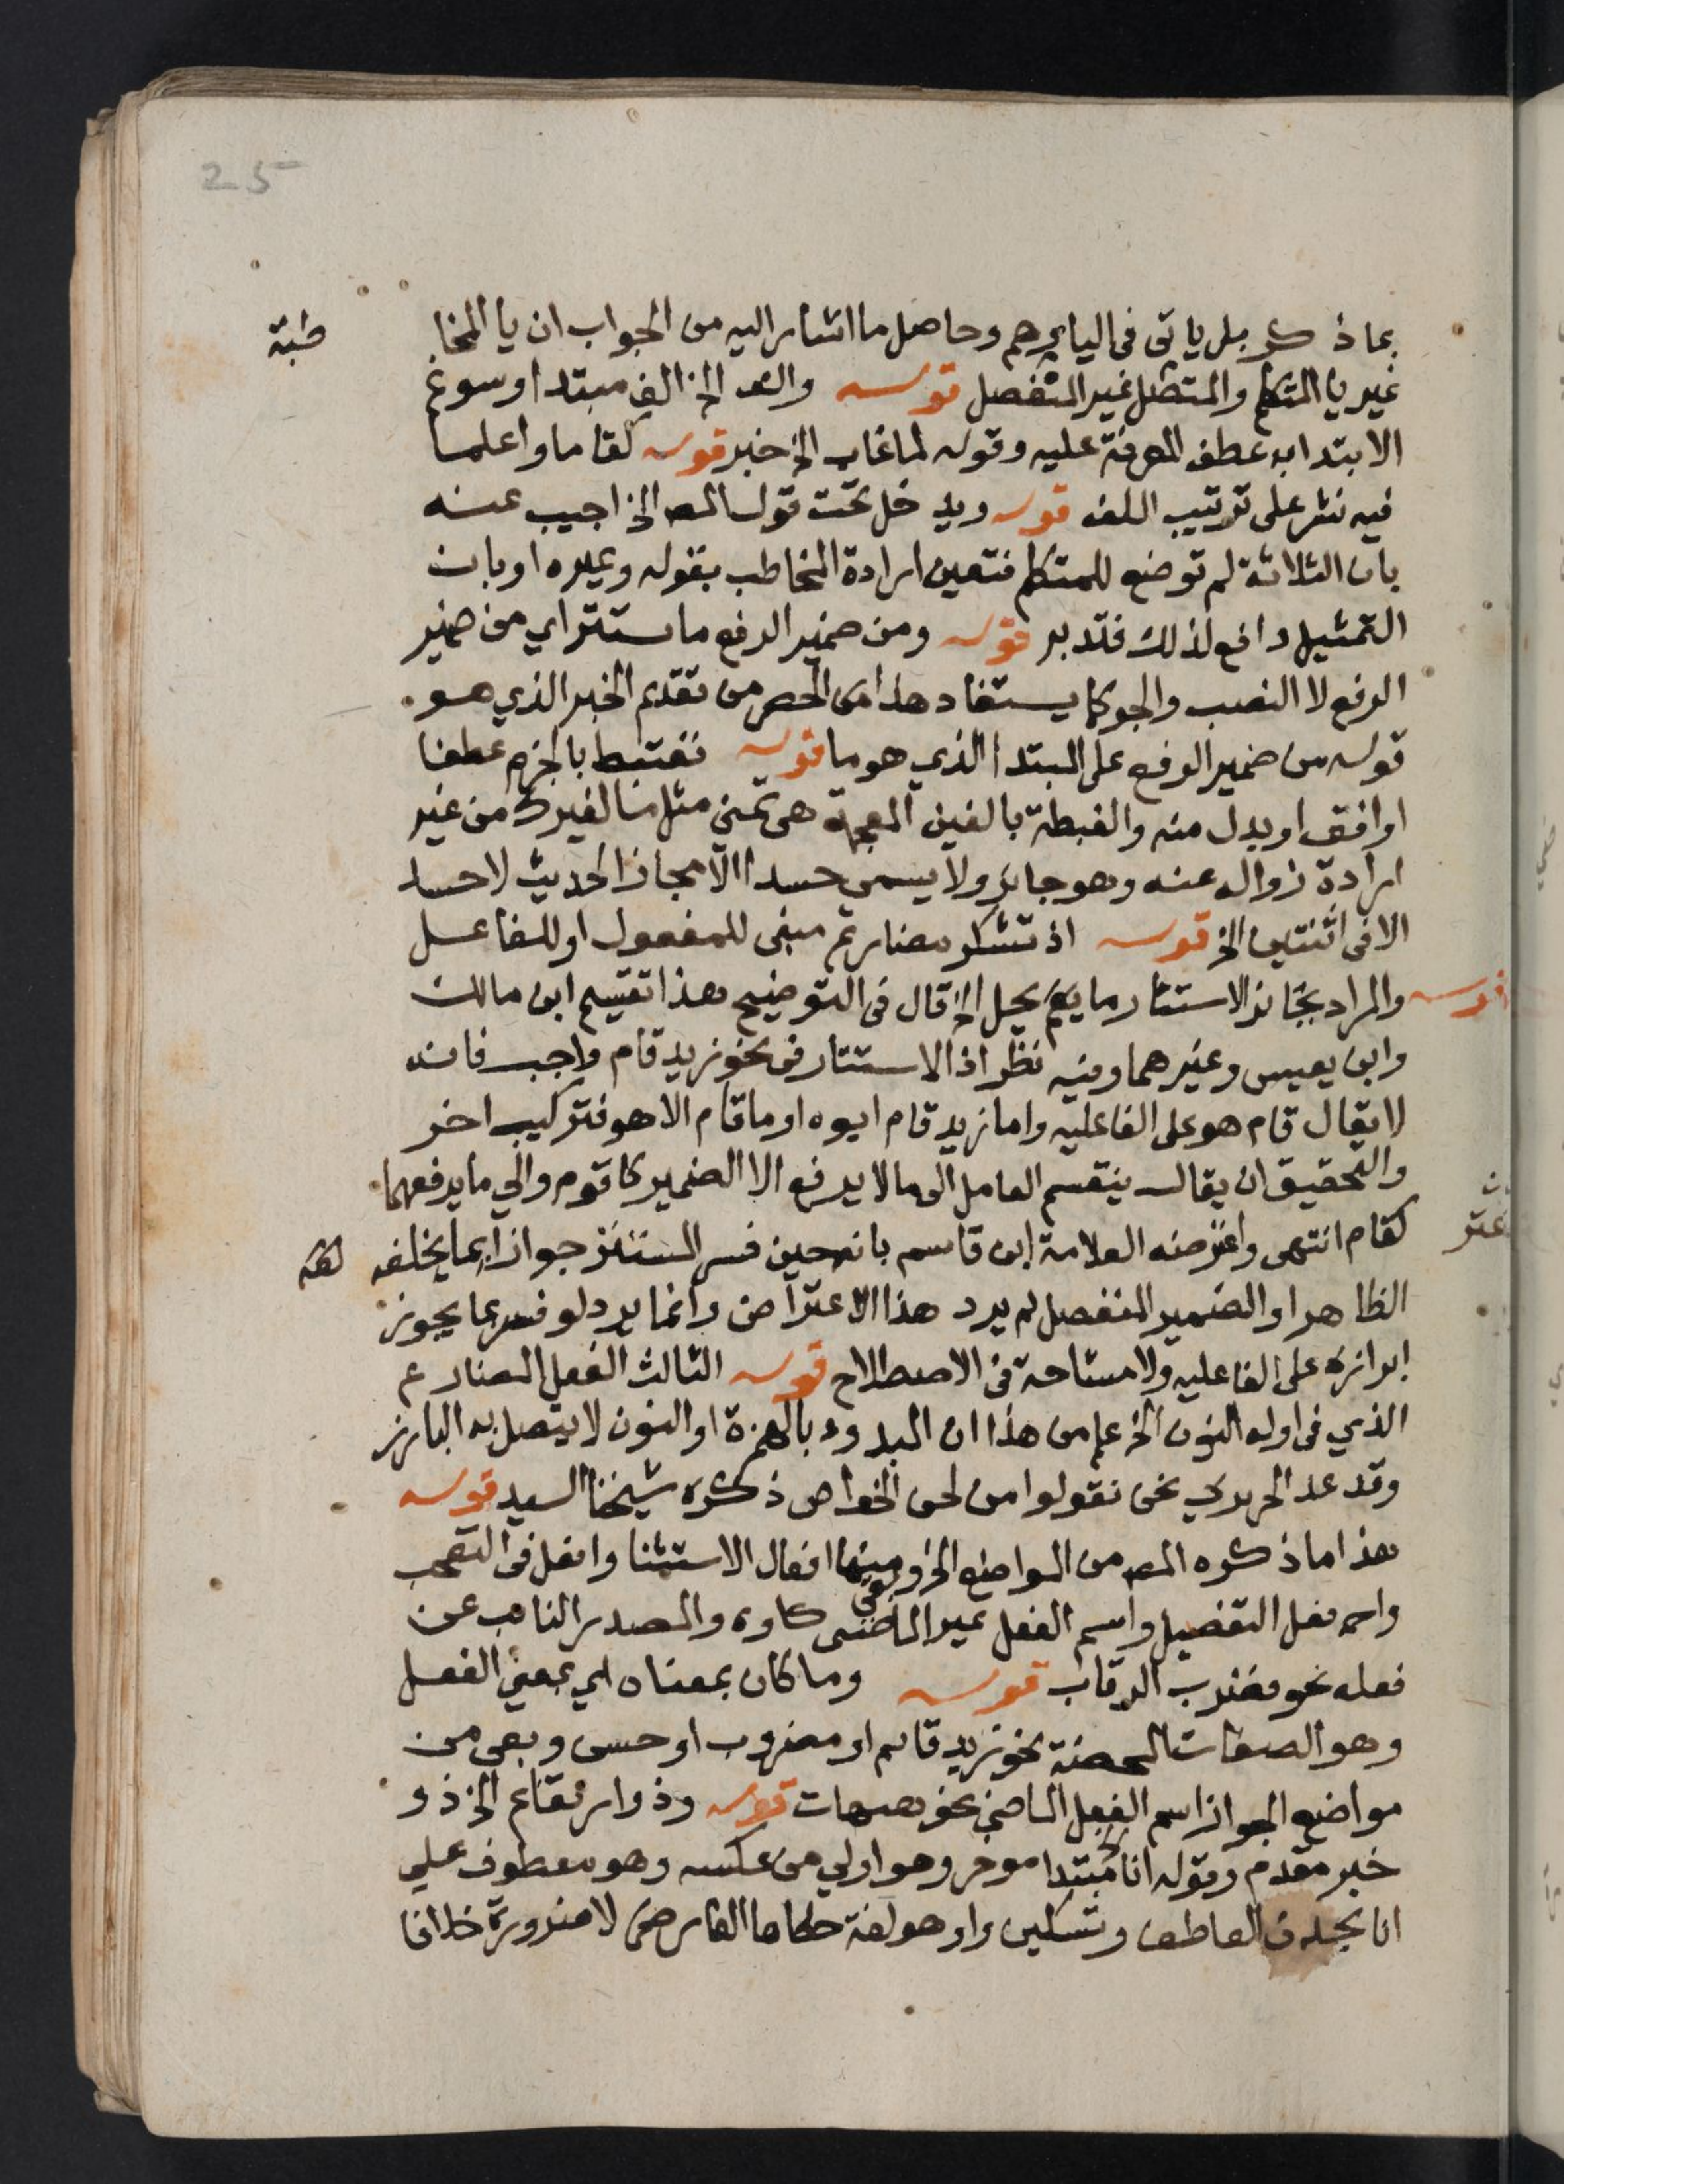 25
بما ذكر بل ياتى فى اليا يرهم وحاصل ما اشار اليه من الجواب ان يا المخا
طبة
غير يا المتكلم والمتصل غير المنفصل قوله والف الخ الف مبتدا وسوغ
الابتدا به عطف المعرفة عليه وقوله لما غاب الخ خبر قوله كقاما واعلما
فيه نشر على ترتيب اللف قوله ويدخل تحت قول المص الخ اجيب عنه
بان الثلاثة لم توضع للمتكلم فتعين ارادة المخاطب بقوله وغيره او بان
التمثيل دافع لذلك فتدبر قوله ومن ضمير الرفع ما يستتر اي من ضمير
الرفع لا النصب والجر كما يستفاد هذا من الحصر من تقديم الخبر الذي هو
قوله من ضمير الرفع على المبتدا الذي هو ما قوله نغتبط بالجزم عطفا
اوافق او بدل منه والغبطة بالغين المعجمة هى تمنى مثل ما لغيرك من غير
ارادة زواله عنه وهو جايز ولا يسمى حسدا الا مجازا لحديث لا حسد
الا فى اثنتين الخ قوله اذ تشكر مضارع مبنى للمفعول او للفاعل
قوله والمراد بجائز الاستتار ما يصح يحل الخ قال فى التوضيح هذا تقسيم ابن مالك
وابن يعيس وغيرهما وفيه نظر اذ الاستتار فى نحو زيد قام واجب فانه
لا يقال قام هو على الفاعليه واما زيد قام ابوه او ما قام الا هو فتركيب اخر
والتحقيق ان يقال ينقسم العامل الى ما لا يرفع الا الضمير كاقوم والي ما يرفعهما
كقام انتهى واعترضه العلامة ابن قاسم بانه حين فسر المستتر جوازا بما يخلفه
الظاهر او الضمير المنفصل لم يرد هذا الاعتراض وانما يرد لو فسر بما يجوز
ابرازه على الفاعليه ولا مشاحة فى الاصطلاح قوله الثالث الفعل المضارع
الذي فى اوله النون الخ علم من هذا ان المبدوء بالهمزة او النون لا يتصل به البارز
وقد عد الحريري نحن نقولوا من لحن الخواص ذكره شيخنا السيد قوله
هذا ما ذكره المص من المواضع الخ وبقى منها افعال الاستثنا وافعل فى التعجب
وافعل التفضيل واسم الفعل غير الماضى كاوه والمصدر النائب عن
فعله نحو فضرب الرقاب قوله وما كان بمعناه اي بمعنى الفعل
وهو الصفات المحضة نحو زيد قايم او مضروب او حسن وبقى من
مواضع الجواز اسم الفعل الماضى نحو هيهات قوله وذو ارتفاع الخ ذو
خبر مقدم وقوله انا مبتدا موخر وهو اولي من عكسه وهو معطوف على
انا بحذف العاطف وتسكين واو هو لغة حكاها الفارضى لا ضرورة خلافا